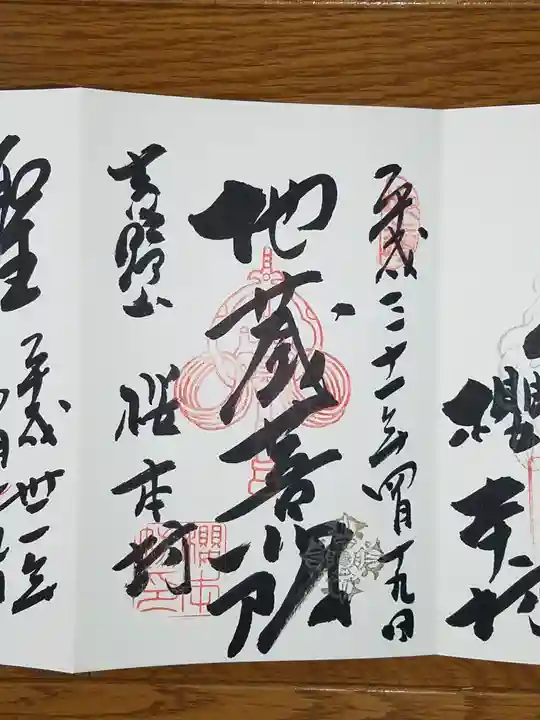 櫻本坊
平成三十一年四月十九日
地蔵菩薩
吉野山 桜本坊
平成卅一年
聖